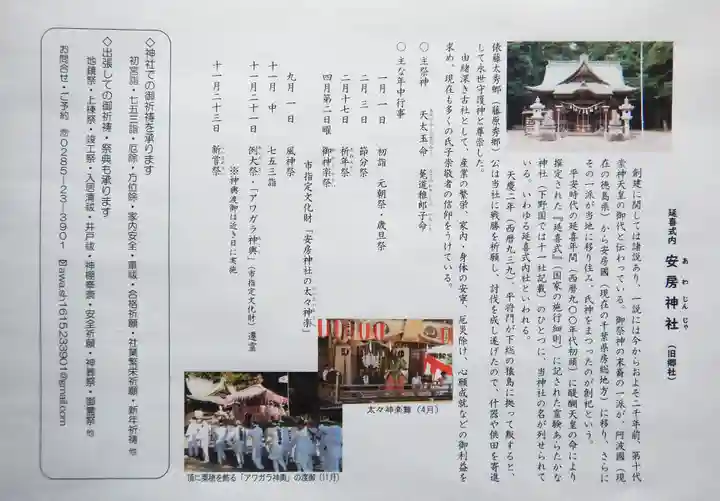 延喜式内 安房神社（旧郷社）
あわじんじゃ
創建に関しては諸説あり、一説には今からおよそ二千年前、第十代
崇神天皇の御代と伝わっている。御祭神の末裔の一派が、阿波國（現
在の徳島県）から安房國（現在の千葉県房総地方）に移り、さらに
その一派が当地に移り住み、氏神をまつったのが創祀という。
平安時代の延喜年間（西暦九〇〇年代初頭）に醍醐天皇の命により
撰定された『延喜式』（国家の施行細則）に記された霊験あらたかな
神社（下野国では十一社記載）のひとつに、当神社の名が列せられて
いる。いわゆる延喜式内社といわれる。
天慶二年（西暦九三九）、平将門が下総の猿島に拠って叛すると、
俵藤太秀郷（藤原秀郷）公は当社に戦勝を祈願し、討伐を成し遂げたので、什器や供田を寄進
して永世守護神と尊崇した。
由緒深き古社として、産業の繁栄、家内・身体の安寧、厄災除け、心願成就などの御利益を
求め、現在も多くの氏子崇敬者の信仰をうけている。
〇主祭神 天太玉命 莵道稚郎子命
〇主な年中行事
一月一日 初詣 元朝祭・歳旦祭
二月三日 節分祭
二月十七日 祈年祭
四月第二日曜 御神楽祭
市指定文化財「安房神社の太々神楽」
九月一日 風神祭
十一月中 七五三詣
十一月二十一日 例大祭・「アワガラ神輿」（市指定文化財）遷霊
※神輿渡御は近き日に実施
十一月二十三日 新嘗祭
太々神楽舞（4月）
頂に粟穂を飾る「アワガラ神輿」の渡御（11月）
◇神社での御祈祷を承ります
初宮詣・七五三詣・厄除・方位除・家内安全・車祓・合格祈願・社業繁栄祈願・新年祈祷 他
◇出張しての御祈祷・祭典も承ります
地鎮祭・上棟祭・竣工祭・入居清祓・井戸祓・神棚奉斎・安全祈願・神葬祭・御霊祭 他
お問合せ・ご予約 ☎0285-23-3901 ✉awa.sh1615.233901@gmail.com